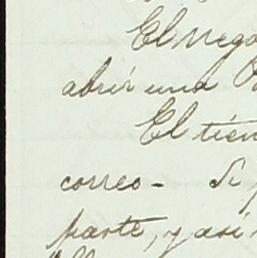 El nego
abrir una
El tien
correo - Si
parte, y así